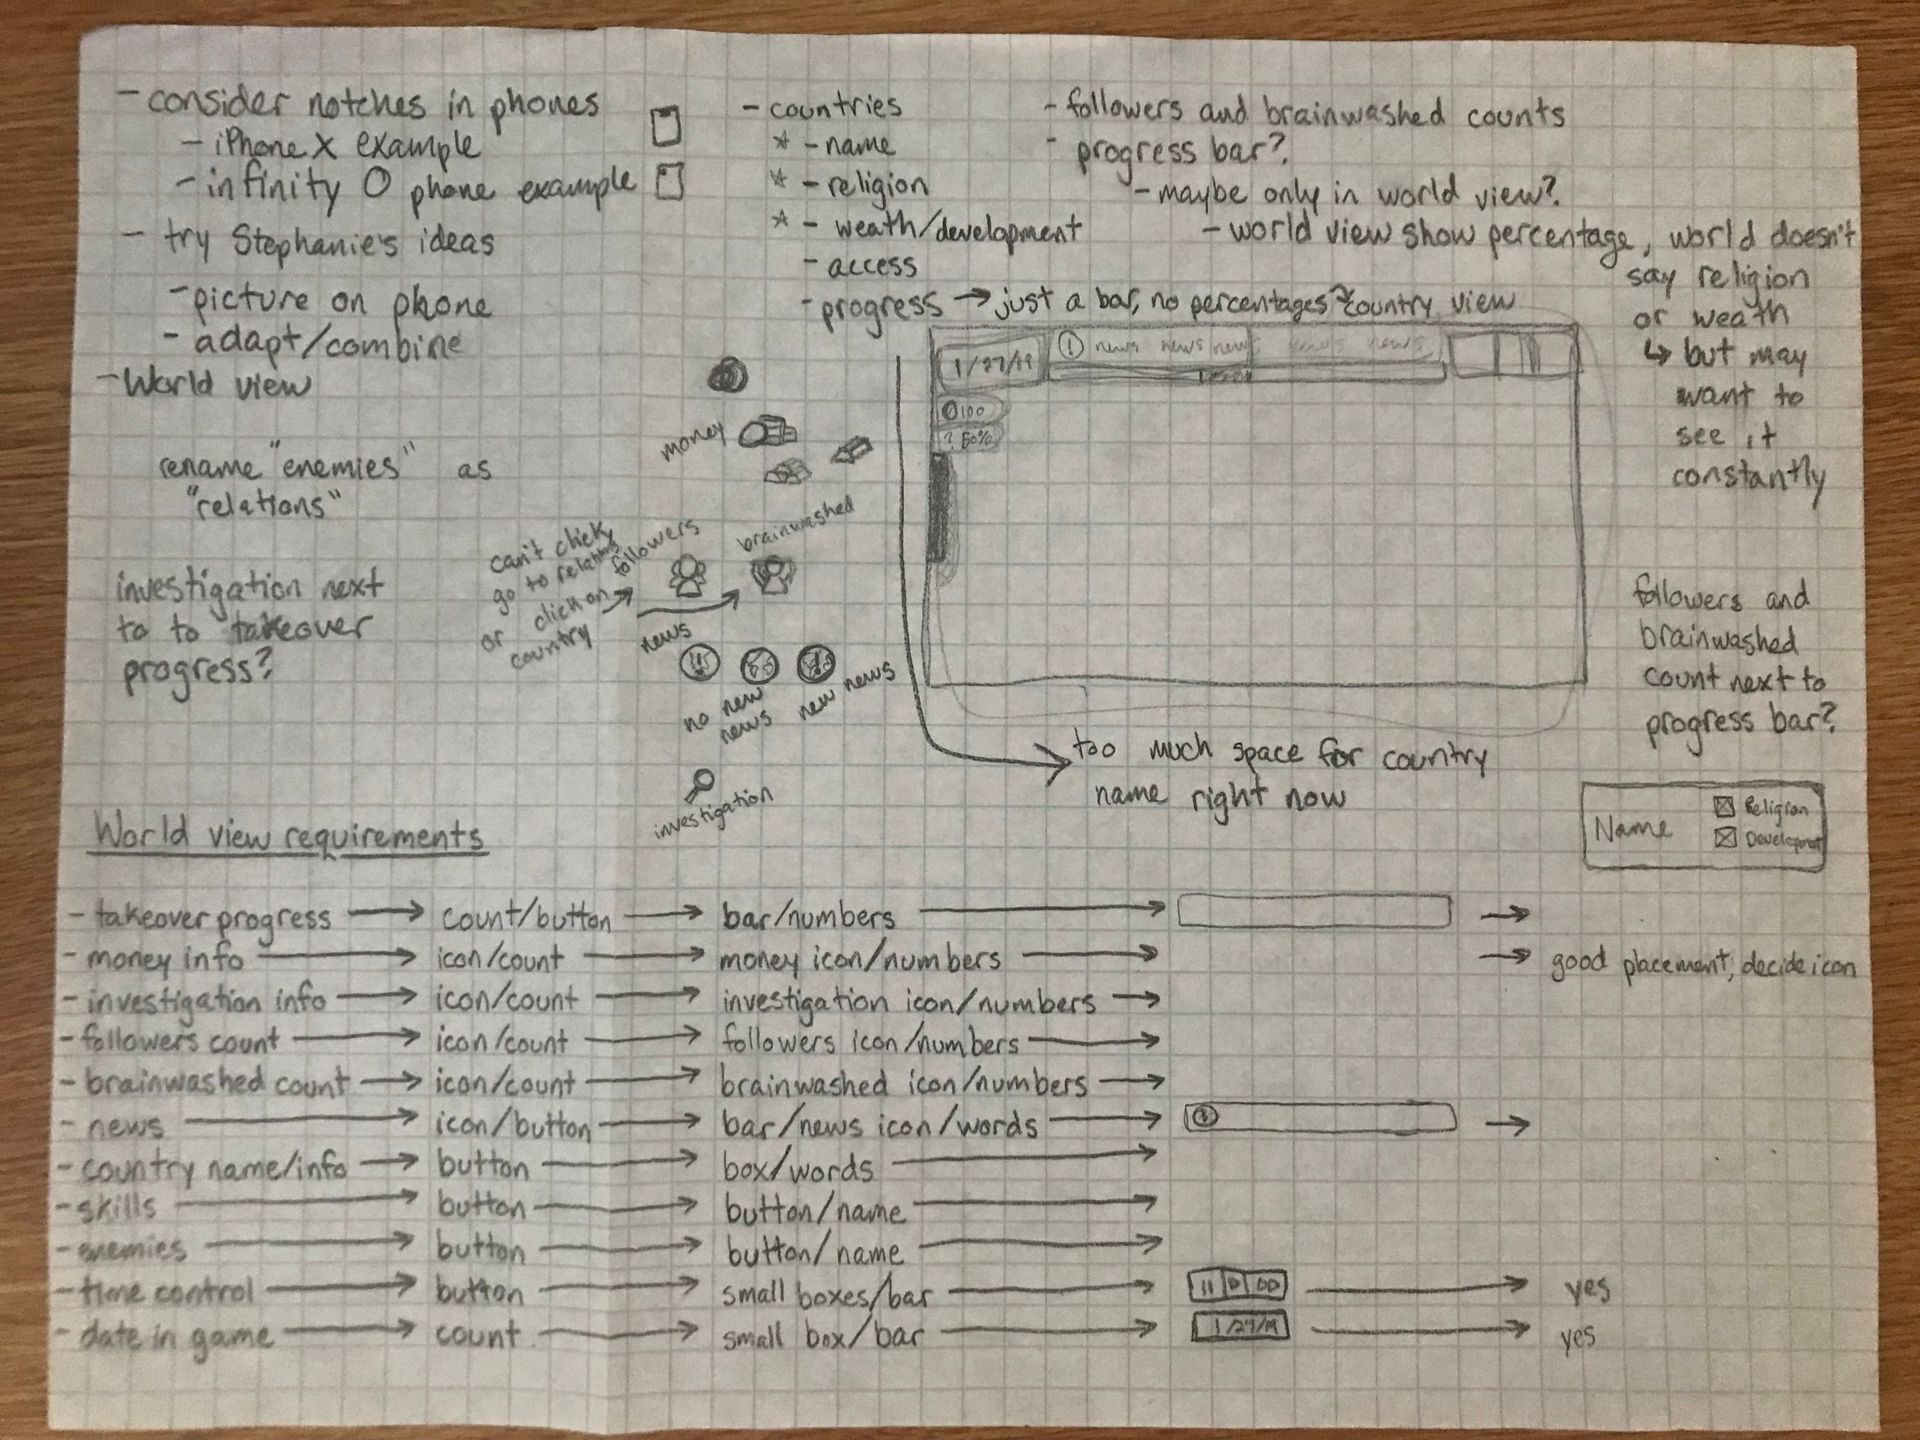 - consider notches in phones
- iPhone X example
- infinity O phone example
- try Stephanie's ideas
- picture on phone
- adapt/combine
- World view
rename "enemies" as
"relations"
investigation next
to to takeover
progress?
- countries
* - name
* - religion
* - weath/development
- access
- progress → just a bar, no percentages? country view
- followers and brainwashed counts
- progress bar?
- maybe only in world view?
- world view show percentage, world doesn't
say religion
or weath
↳ but may
want to
see it
constantly
money
can't click,
go to relations
or click on
country →
followers
brainwashed
news
no new
news
new news
investigation
1/27/19
! news news news news news
100
? 50%
too much space for country
name right now
followers and
brainwashed
count next to
progress bar?
Name
Religion
Development
World view requirements
- takeover progress → count/button → bar/numbers → →
- money info → icon/count → money icon/numbers → → good placement, decide icon
- investigation info → icon/count → investigation icon/numbers →
- followers count → icon/count → followers icon/numbers →
- brainwashed count → icon/count → brainwashed icon/numbers →
- news → icon/button → bar/news icon/words → →
- country name/info → button → box/words →
- skills → button → button/name →
- enemies → button → button/name →
- time control → button → small boxes/bar → → yes
- date in game → count → small box/bar → 1/27/19 → yes